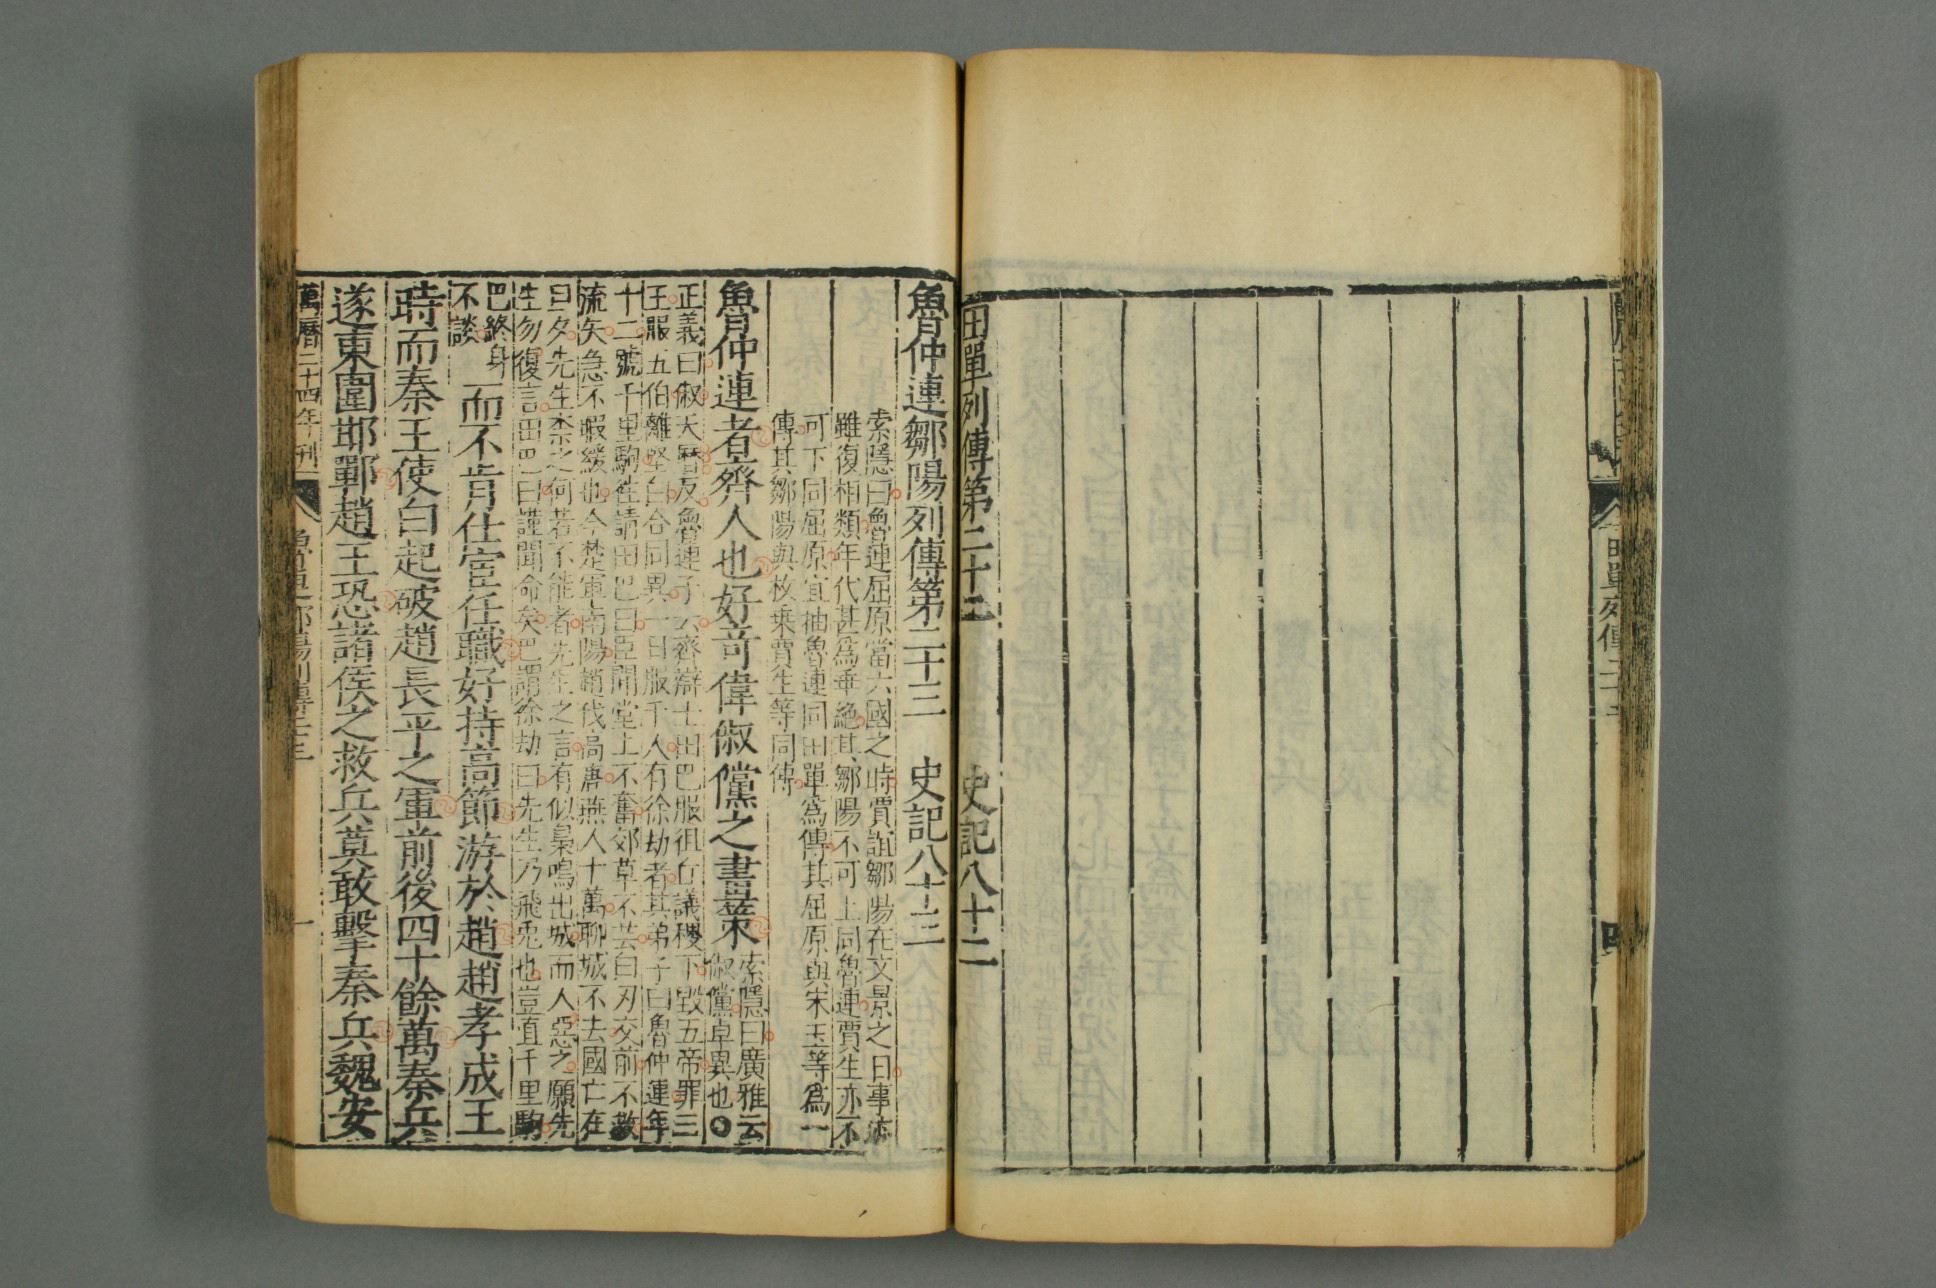 田單列傳第二十二　史記八十二
魯仲連鄒陽列傳第二十三　史記八十三
索隱曰魯連屈原當六國之時賈誼鄒陽在文景之日事迹
雖復相類年代甚爲乖絶其鄒陽不可上同魯連賈生亦不
可下同屈原宜抽魯連同田單爲傳其屈原與宋玉等爲一
傳其鄒陽與枚乗賈生等同傳
魯仲連者齊人也好竒偉俶儻之畫策
索隱曰廣雅云
俶儻卓異也○
正義曰俶天曆反魯連子云齊辯士田巴服狙丘議稷下毀五帝罪三
王服五伯離堅白合同異一日服千人有徐劫者其弟子曰魯仲連年
十二號千里駒徃請田巴曰臣聞堂上不奮郊草不芸白刃交前不救
流矢急不暇緩也今楚軍南陽趙伐高唐燕人十萬聊城不去國亡在
旦夕先生柰之何若不能者先生之言有似梟鳴出城而人惡之願先
生勿復言田巴曰謹聞命矣巴謂徐劫曰先生乃飛兎也豈直千里駒
巴終身
不談
而不肯仕宦任職好持高節游於趙趙孝成王
時而秦王使白起破趙長平之軍前後四十餘萬秦兵
遂東圍邯鄲趙王恐諸侯之救兵莫敢擊秦兵魏安
萬曆二十四年刊
一